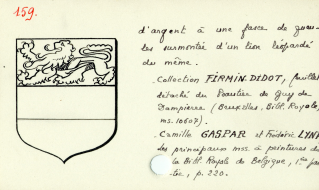 159.
d'argent à une fasce de gueu-
les surmontée d'un lion léopardé
du même.
- Collection FIRMIN-DIDOT, (feuillet
détaché du Psautier de Guy de
Dampierre (Bruxelles, Bibl. Royale,
ms. 10607).
- Camille GASPAR et Frédéric LYNA
les principaux mss. à peintures de
la Bibl. Royale de Belgique, 1ère par
tie, p. 220.